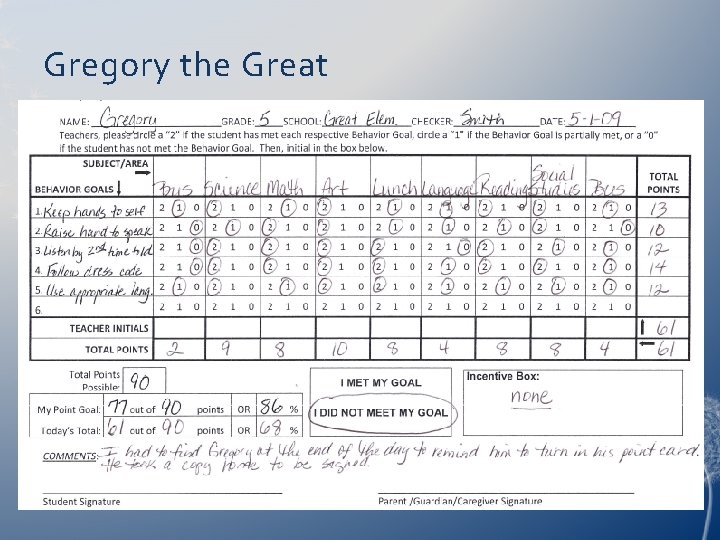 Gregory the Great
NAME: Gregory GRADE: 5 SCHOOL: Great Elem. CHECKER: Smith DATE: 5-1-09
Teachers, please circle a "2" if the student has met each respective Behavior Goal, circle a "1" if the Behavior Goal is partially met, or a "0"
if the student has not met the Behavior Goal. Then, initial in the box below.
SUBJECT/AREA
BEHAVIOR GOALS Bus Science Math Art Lunch Language Reading Social Studies Bus TOTAL POINTS
1. Keep hands to self 2 1 0 2 1 0 2 1 0 2 1 0 2 1 0 2 1 0 2 1 0 2 1 0 2 1 0 13
2. Raise hand to speak 2 1 0 2 1 0 2 1 0 2 1 0 2 1 0 2 1 0 2 1 0 2 1 0 2 1 0 10
3. Listen by 2nd time told 2 1 0 2 1 0 2 1 0 2 1 0 2 1 0 2 1 0 2 1 0 2 1 0 2 1 0 12
4. Follow dress code 2 1 0 2 1 0 2 1 0 2 1 0 2 1 0 2 1 0 2 1 0 2 1 0 2 1 0 14
5. Use appropriate lang. 2 1 0 2 1 0 2 1 0 2 1 0 2 1 0 2 1 0 2 1 0 2 1 0 2 1 0 12
6. 2 1 0 2 1 0 2 1 0 2 1 0 2 1 0 2 1 0 2 1 0 2 1 0 2 1 0
TEACHER INITIALS 61
TOTAL POINTS 2 9 8 10 8 4 8 8 4 61
Total Points Possible: 90
My Point Goal: 77 out of 90 points OR 86 %
Today's Total: 61 out of 90 points OR 68 %
I MET MY GOAL
I DID NOT MEET MY GOAL
Incentive Box:
none
COMMENTS: I had to find Gregory at the end of the day to remind him to turn in his point card.
He took a copy home to be signed.
Student Signature Parent /Guardian/Caregiver Signature